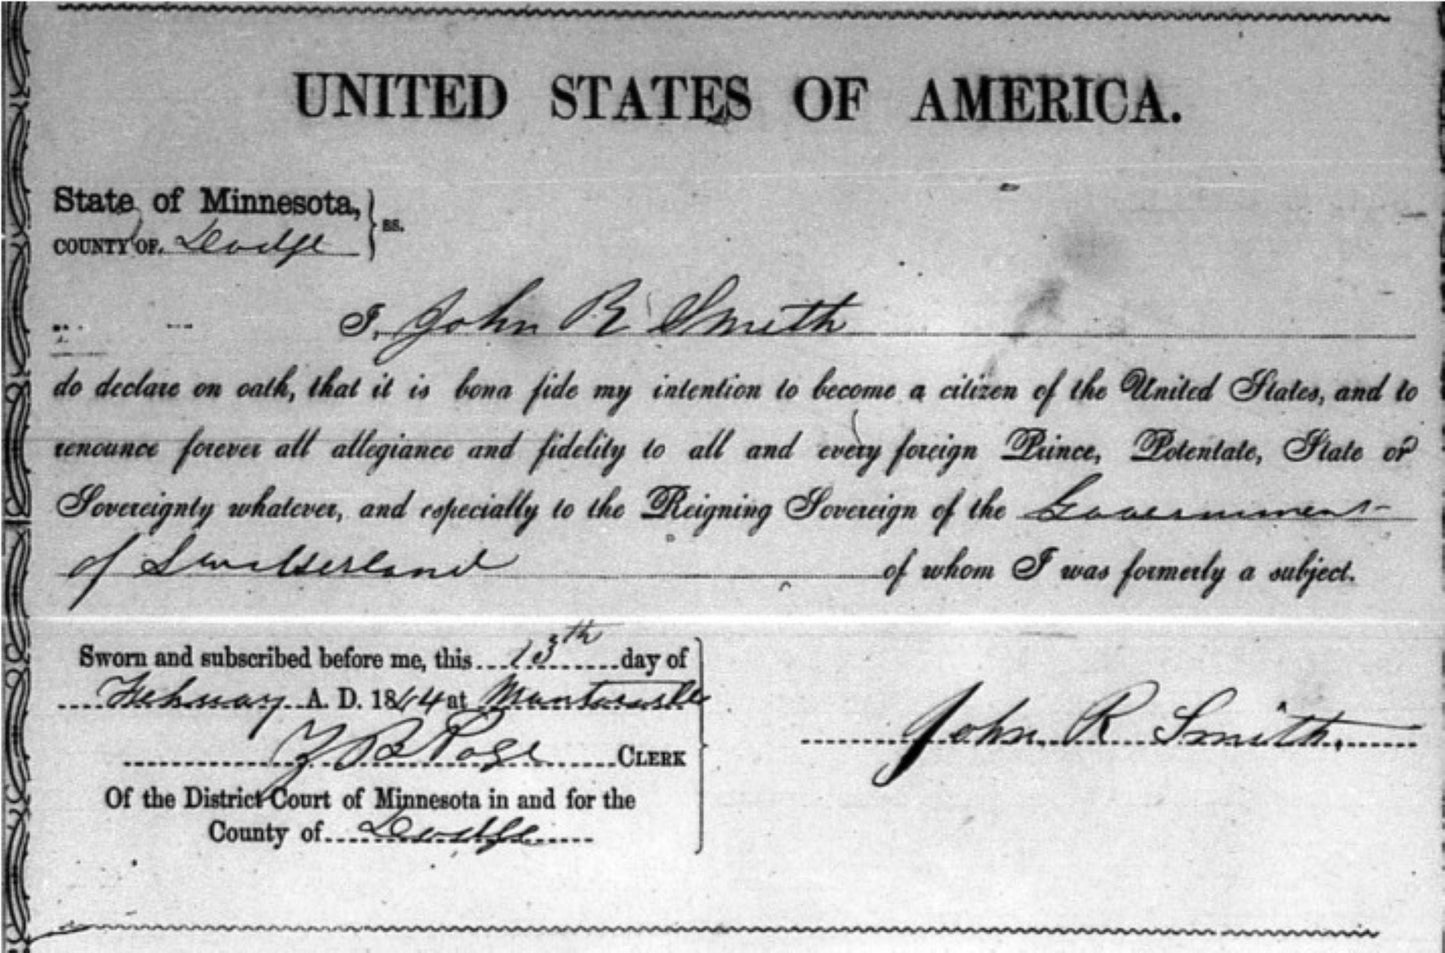 UNITED STATES OF AMERICA.
State of Minnesota,
COUNTY OF. Dodge
ss.
I, John R Smith
do declare on oath, that it is bona fide my intention to become a citizen of the United States, and to
renounce forever all allegiance and fidelity to all and every foreign Prince, Potentate, State or
Sovereignty whatever, and especially to the Reigning Sovereign of the Government
of Switserland of whom I was formerly a subject.
Sworn and subscribed before me, this 13th day of
February A. D. 1864 at Mantorville
B Page CLERK
Of the District Court of Minnesota in and for the
County of Dodge
John R Smith.